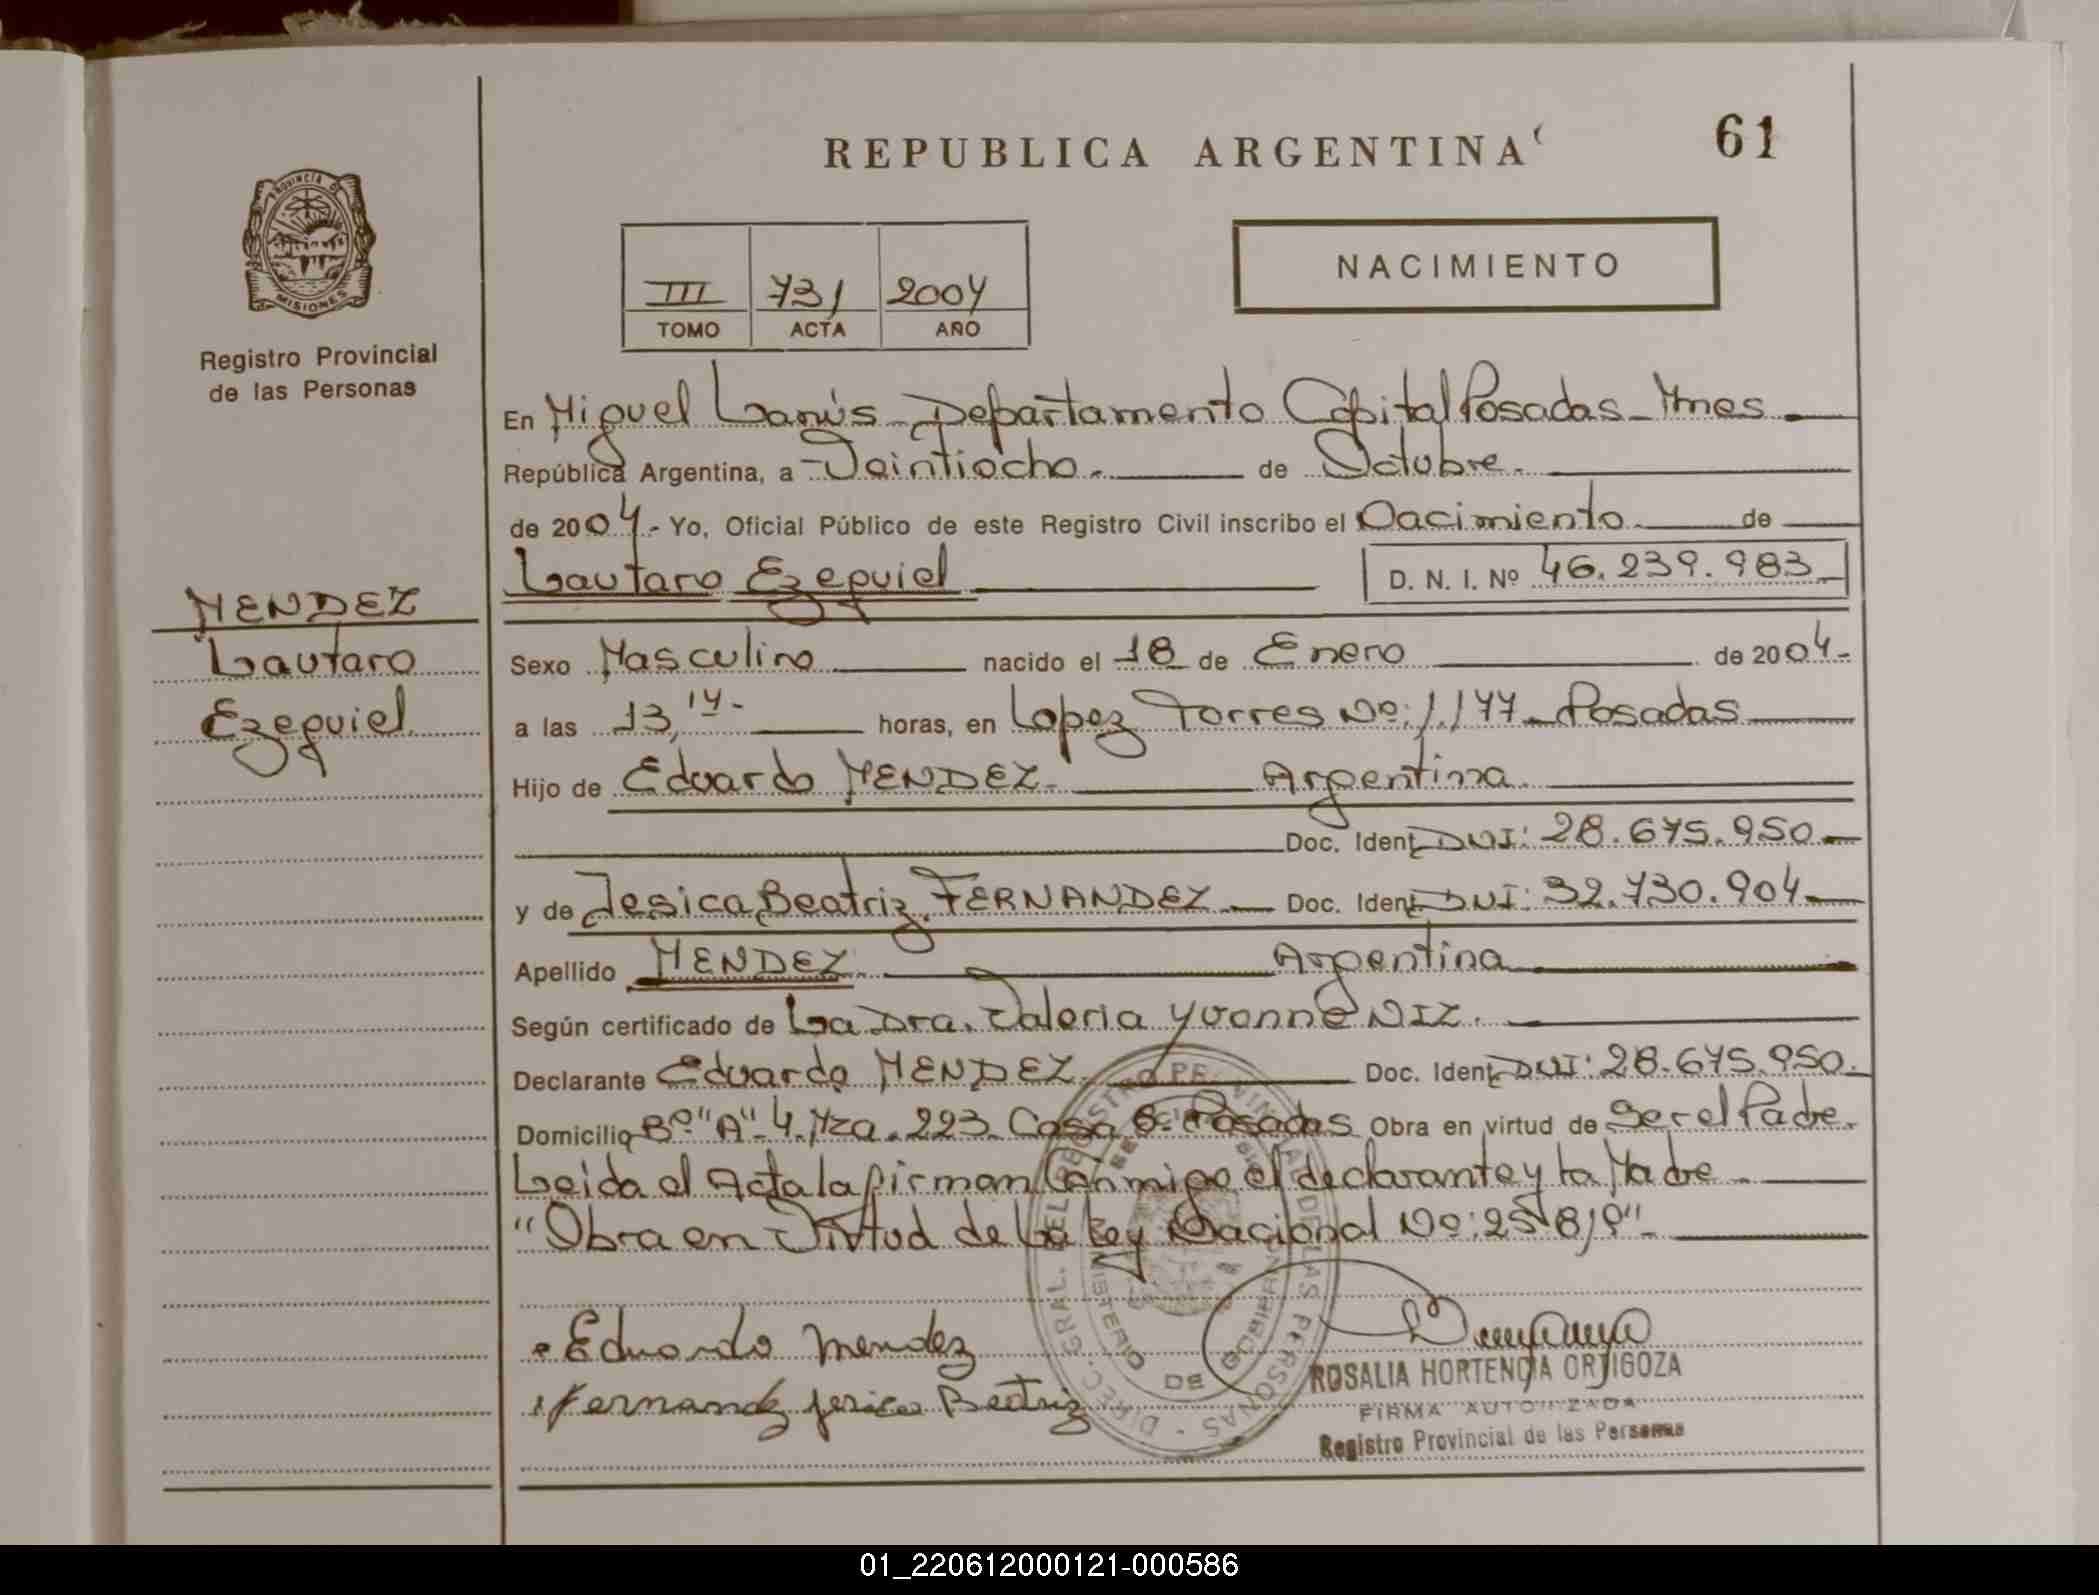 REPUBLICA ARGENTINA
61
PROVINCIA DE
MISIONES
Registro Provincial
de las Personas
III 731 2004
TOMO ACTA AÑO
NACIMIENTO
En Miguel Lanús - Departamento Capital Posadas - Mnes
República Argentina, a Veintiocho.- de Octubre.
de 2004.- Yo, Oficial Público de este Registro Civil inscribo el Nacimiento. de
Lautaro Ezequiel
D. N. I. Nº 46.239.983
MENDEZ
Lautaro
Ezequiel
Sexo Masculino nacido el 18 de Enero de 2004-
a las 13,14- horas, en Lopez Torres Nº: 1.177 - Posadas
Hijo de Eduardo MENDEZ- Argentina.
Doc. Ident. DNI: 28.675.950.-
y de Jesica Beatriz FERNANDEZ - Doc. Ident. DNI: 32.730.904-
Apellido MENDEZ. Argentina
Según certificado de La Dra. Valeria Yvonne NIZ.
Declarante Eduardo MENDEZ Doc. Ident. DNI: 28.675.950.
Domicilio Bº "A"-4. Mza. 223. Casa 8- Posadas Obra en virtud de Ser el Padre.
Leida el Acta la firman Conmigo el declarante y la Madre -
"Obra en Virtud de la Ley Nacional Nº: 25.819"-
Eduardo Mendez
Fernandez Jesica Beatriz
DIREC. GRAL. DEL REGISTRO PROVINCIAL DE LAS PERSONAS
MINISTERIO DE GOBIERNO
ROSALIA HORTENCIA ORTIGOZA
FIRMA AUTORIZADA
Registro Provincial de las Personas
01_220612000121-000586